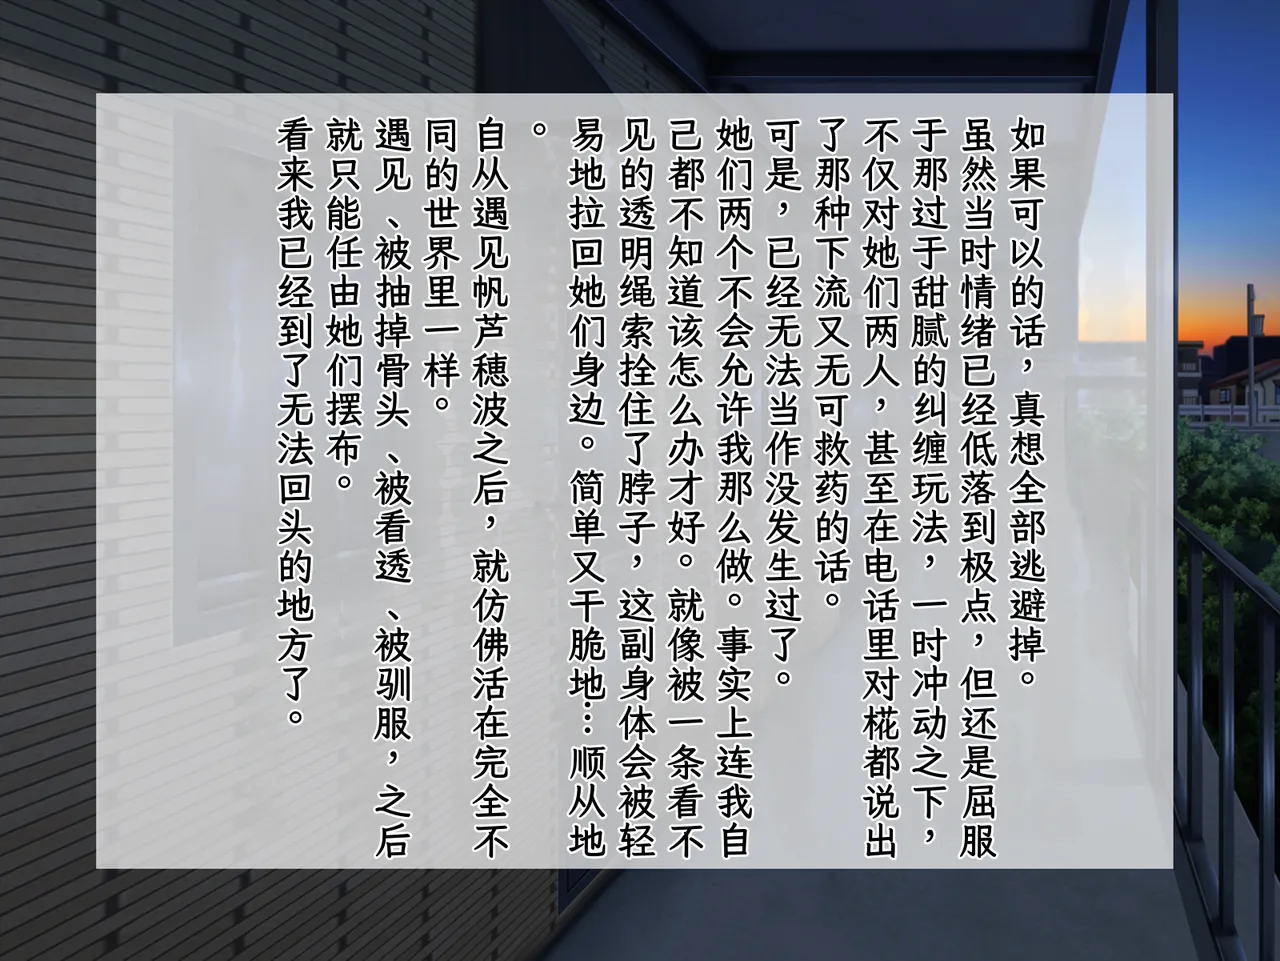 如果可以的话，真想全部逃避掉。
虽然当时情绪已经低落到极点，但还是屈服
于那过于甜腻的纠缠玩法，一时冲动之下，
不仅对她们两人，甚至在电话里对椛都说出
了那种下流又无可救药的话。
可是，已经无法当作没发生过了。
她们两个不会允许我那么做。事实上连我自
己都不知道该怎么办才好。就像被一条看不
见的透明绳索拴住了脖子，这副身体会被轻
易地拉回她们身边。简单又干脆地…顺从地
。
自从遇见帆芦穗波之后，就仿佛活在完全不
同的世界里一样。
遇见、被抽掉骨头、被看透、被驯服，之后
就只能任由她们摆布。
看来我已经到了无法回头的地方了。